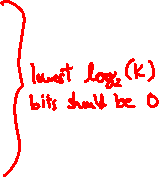 lowest log₂(K)
bits should be 0